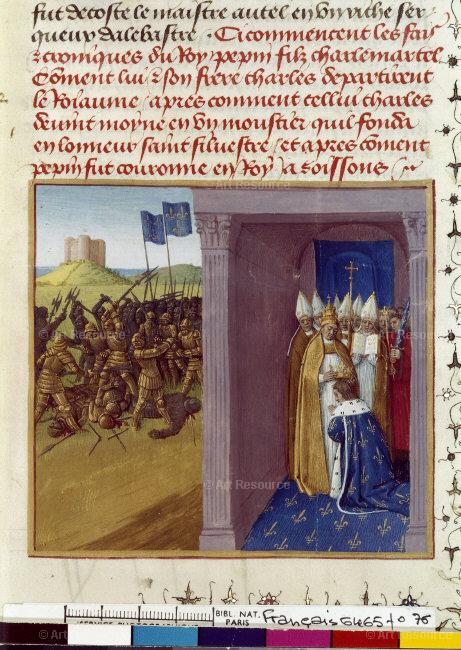 fut decoste le maistre autel en ung riche ser
queuz dalebastre. Ci commencent les fais
et croniques du Roy pepin filz charle martel
Coment lui et son frere charles departirent
le Roiaume apres comment cellui charles
devint moyne en ung moustier quil fonda
en lonneur saint silvestre et apres coment
pepin fut couronne en Roy a soissons
© Art Resource
BIBL. NAT.
PARIS
Français 6465 fo 76